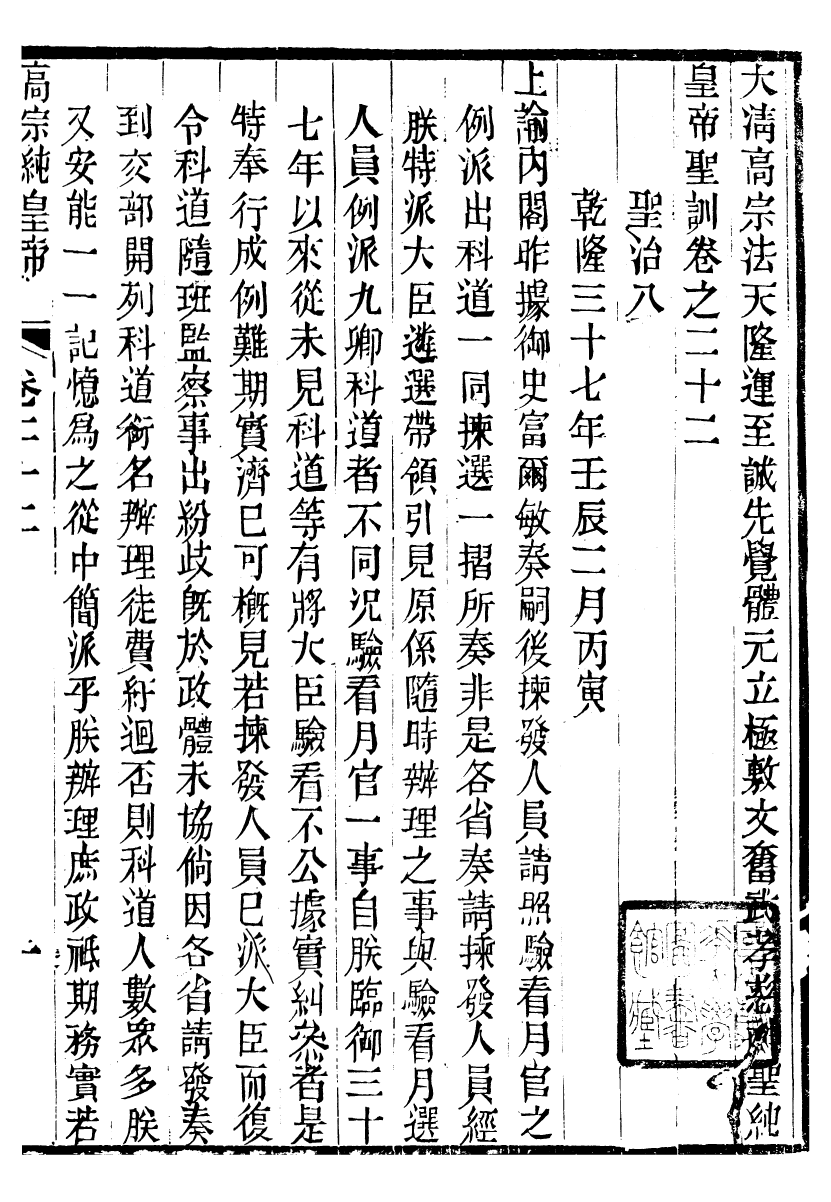 大清高宗法天隆運至誠先覺體元立極敷文奮武孝慈神聖純
皇帝聖訓卷之二十二
聖治八
乾隆三十七年壬辰二月丙寅
上諭內閣昨據御史富爾敏奏嗣後揀發人員請照驗看月官之
例派出科道一同揀選一摺所奏非是各省奏請揀發人員經
朕特派大臣遴選帶領引見原係隨時辦理之事與驗看月選
人員例派九卿科道者不同況驗看月官一事自朕臨御三十
七年以來從未見科道等有將大臣驗看不公據實糾叅者是
特奉行成例難期實濟已可概見若揀發人員已派大臣而復
令科道隨班監察事出紛歧旣於政體未協倘因各省請發奏
到交部開列科道銜名辦理徒費紆迴否則科道人數眾多朕
又安能一一記憶爲之從中簡派乎朕辦理庶政祇期務實若
高宗純皇帝 卷二十二 一